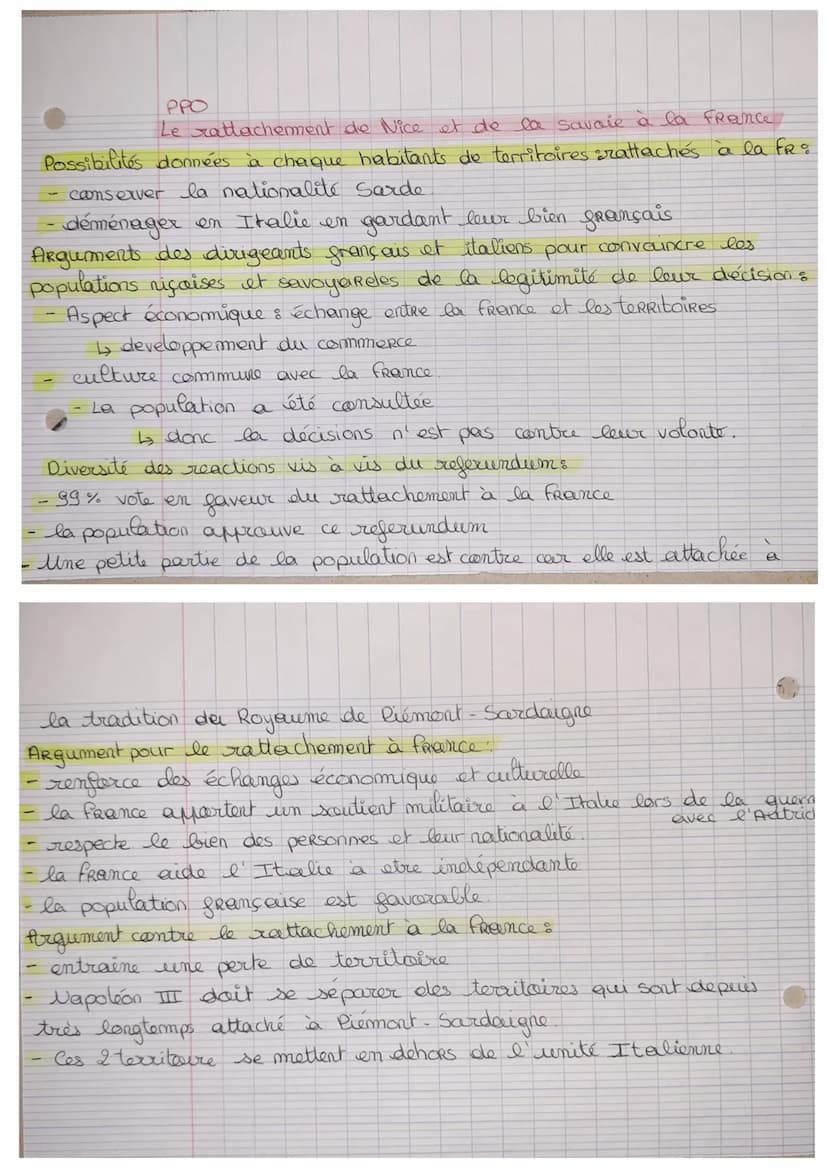 PPO
Le rattachement de Nice et de la Savoie à la France
Possibilités données à chaque habitants de territoires rattachés à la FR :
- conserver la nationalité Sarde
- déménager en Italie en gardant leur bien français
Arguments des dirigeants français et italiens pour convaincre les
populations niçaises et savoyardes de la legitimité de leur décision :
- Aspect économique : échange entre la France et les territoires
↳ developpement du commerce
- culture commune avec la France.
- La population a été consultée
↳ donc la décisions n'est pas contre leur volonté.
Diversité des reactions vis à vis du referundum :
- 99% vote en faveur du rattachement à la France
- la population approuve ce referundum
- Une petite partie de la population est contre car elle est attachée à
la tradition du Royaume de Piémont-Sardaigne
Argument pour le rattachement à France :
- renforce des échanges économique et culturelle
- la France apportent un soutient militaire à l'Italie lors de la guerre
avec l'Autric
- respecte le bien des personnes et leur nationalité.
- la France aide l'Italie à etre indépendante
- la population française est favorable.
Argument contre le rattachement à la France :
- entraine une perte de territoire
- Napoléon III doit se séparer des territoires qui sont depuis
très longtemps attaché à Piémont-Sardaigne.
- Ces 2 territoire se mettent en dehors de l'unité Italienne.